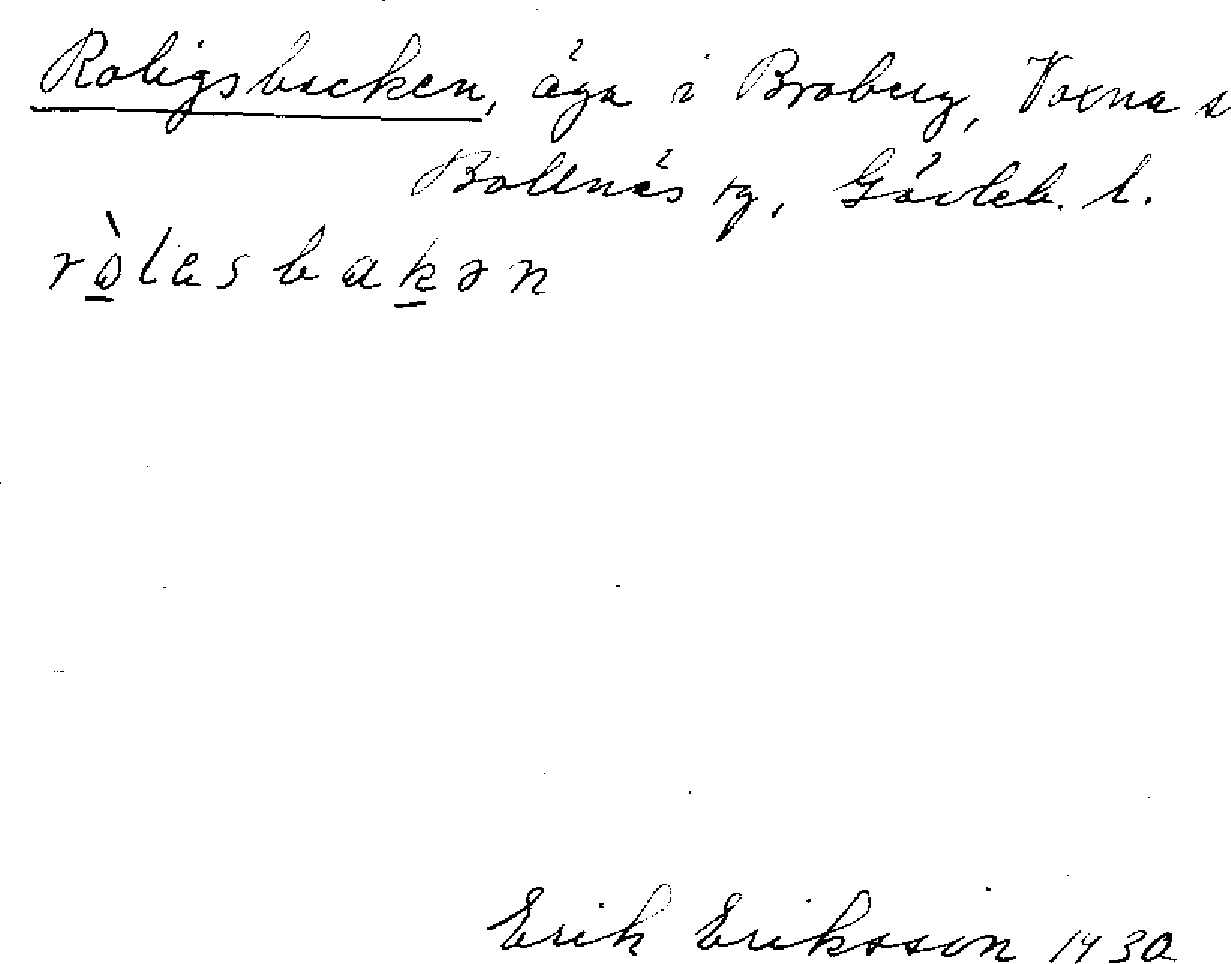 Roligsbacken, äga i Broberg, Voxna s
Bollnäs tg, Gävleb. l.
ròlasbakən
Erik Eriksson 1930